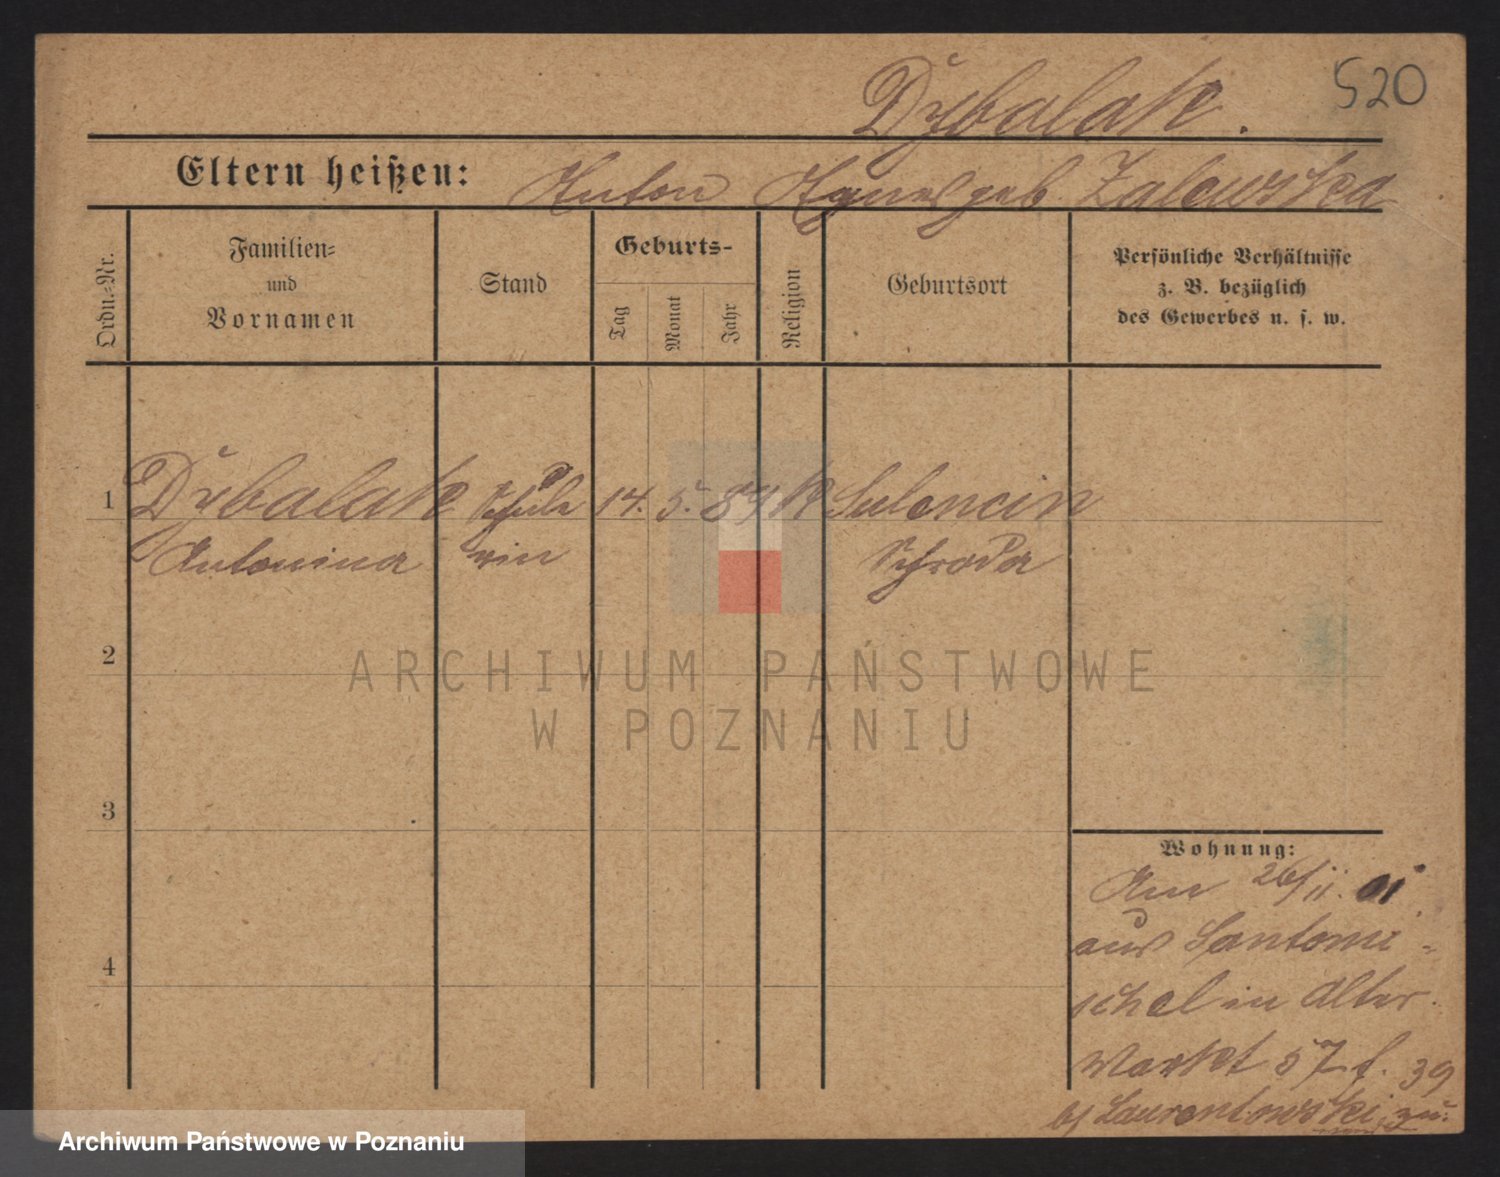 520
Dybalak.
Eltern heißen: Anton Agnes geb. Zalewska
Ordn.-Nr.
Familien- und Vornamen
Stand
Geburts-
Tag
Monat
Jahr
Religion
Geburtsort
Persönliche Verhältnisse
z. B. bezüglich
des Gewerbes u. s. w.
1 Dybalak Schüle 14. 5. 89 K Sulencin
Antonina rin Schroda
2
3
4
Wohnung:
Am 26/11. 01
aus Santomi-
schel in Alter
Markt 57 f. 39
b/ Laurentowski zu.
ARCHIWUM PAŃSTWOWE
W POZNANIU
Archiwum Państwowe w Poznaniu